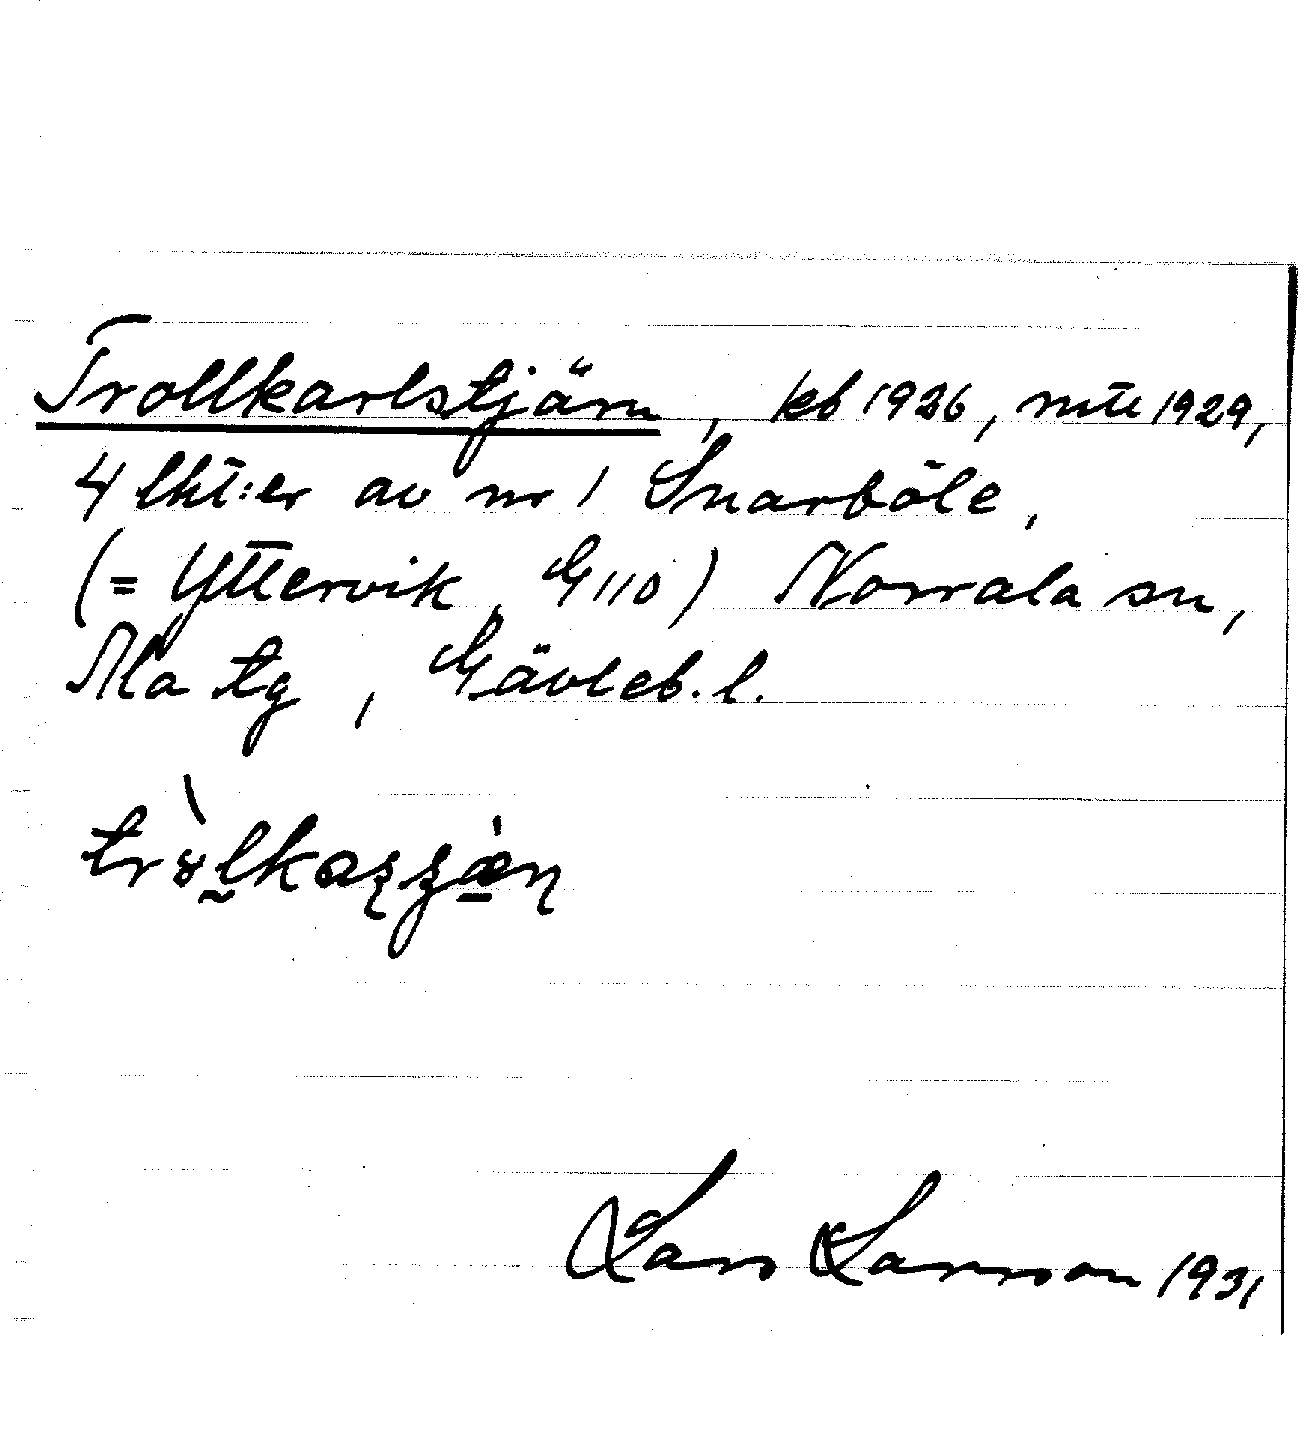 Trollkarlstjärn, kb 1926, mtu 1929,
4 lht:er av nr 1 Snarböle,
(= Yttervik, G 110) Norrala sn,
Ma tg, Gävleb. l.
Lars Larsson 1931